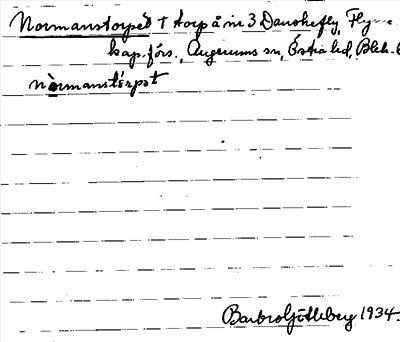 Normanstorpet † torp å nr 3 Danskefly, Fly
kap. förs., Augerums sn, Östra hd, Blek.
nòrmanstórpət
Barbro Götleberg 1934.